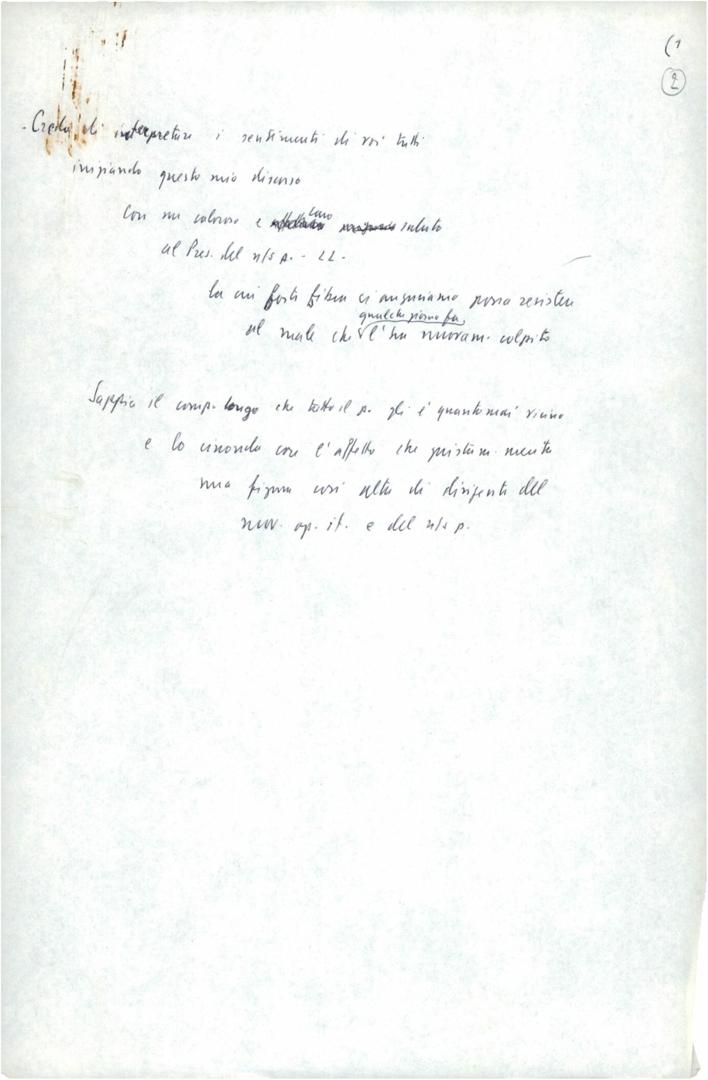 (1
2
- Credo di interpretare i sentimenti di voi tutti
iniziando questo mio discorso
con un caloroso e caro saluto
al Pres. del n/s p. - LL -
la cui forte fibra ci auguriamo possa resistere
qualche giorno fa
al male che l'ha nuovam. colpito
Sappia il comp. Longo che tutto il p. gli è quanto mai vicino
e lo circonda con l'affetto che giustam. merita
una figura così alta di dirigente del
mov. op. it. e del n/s p.